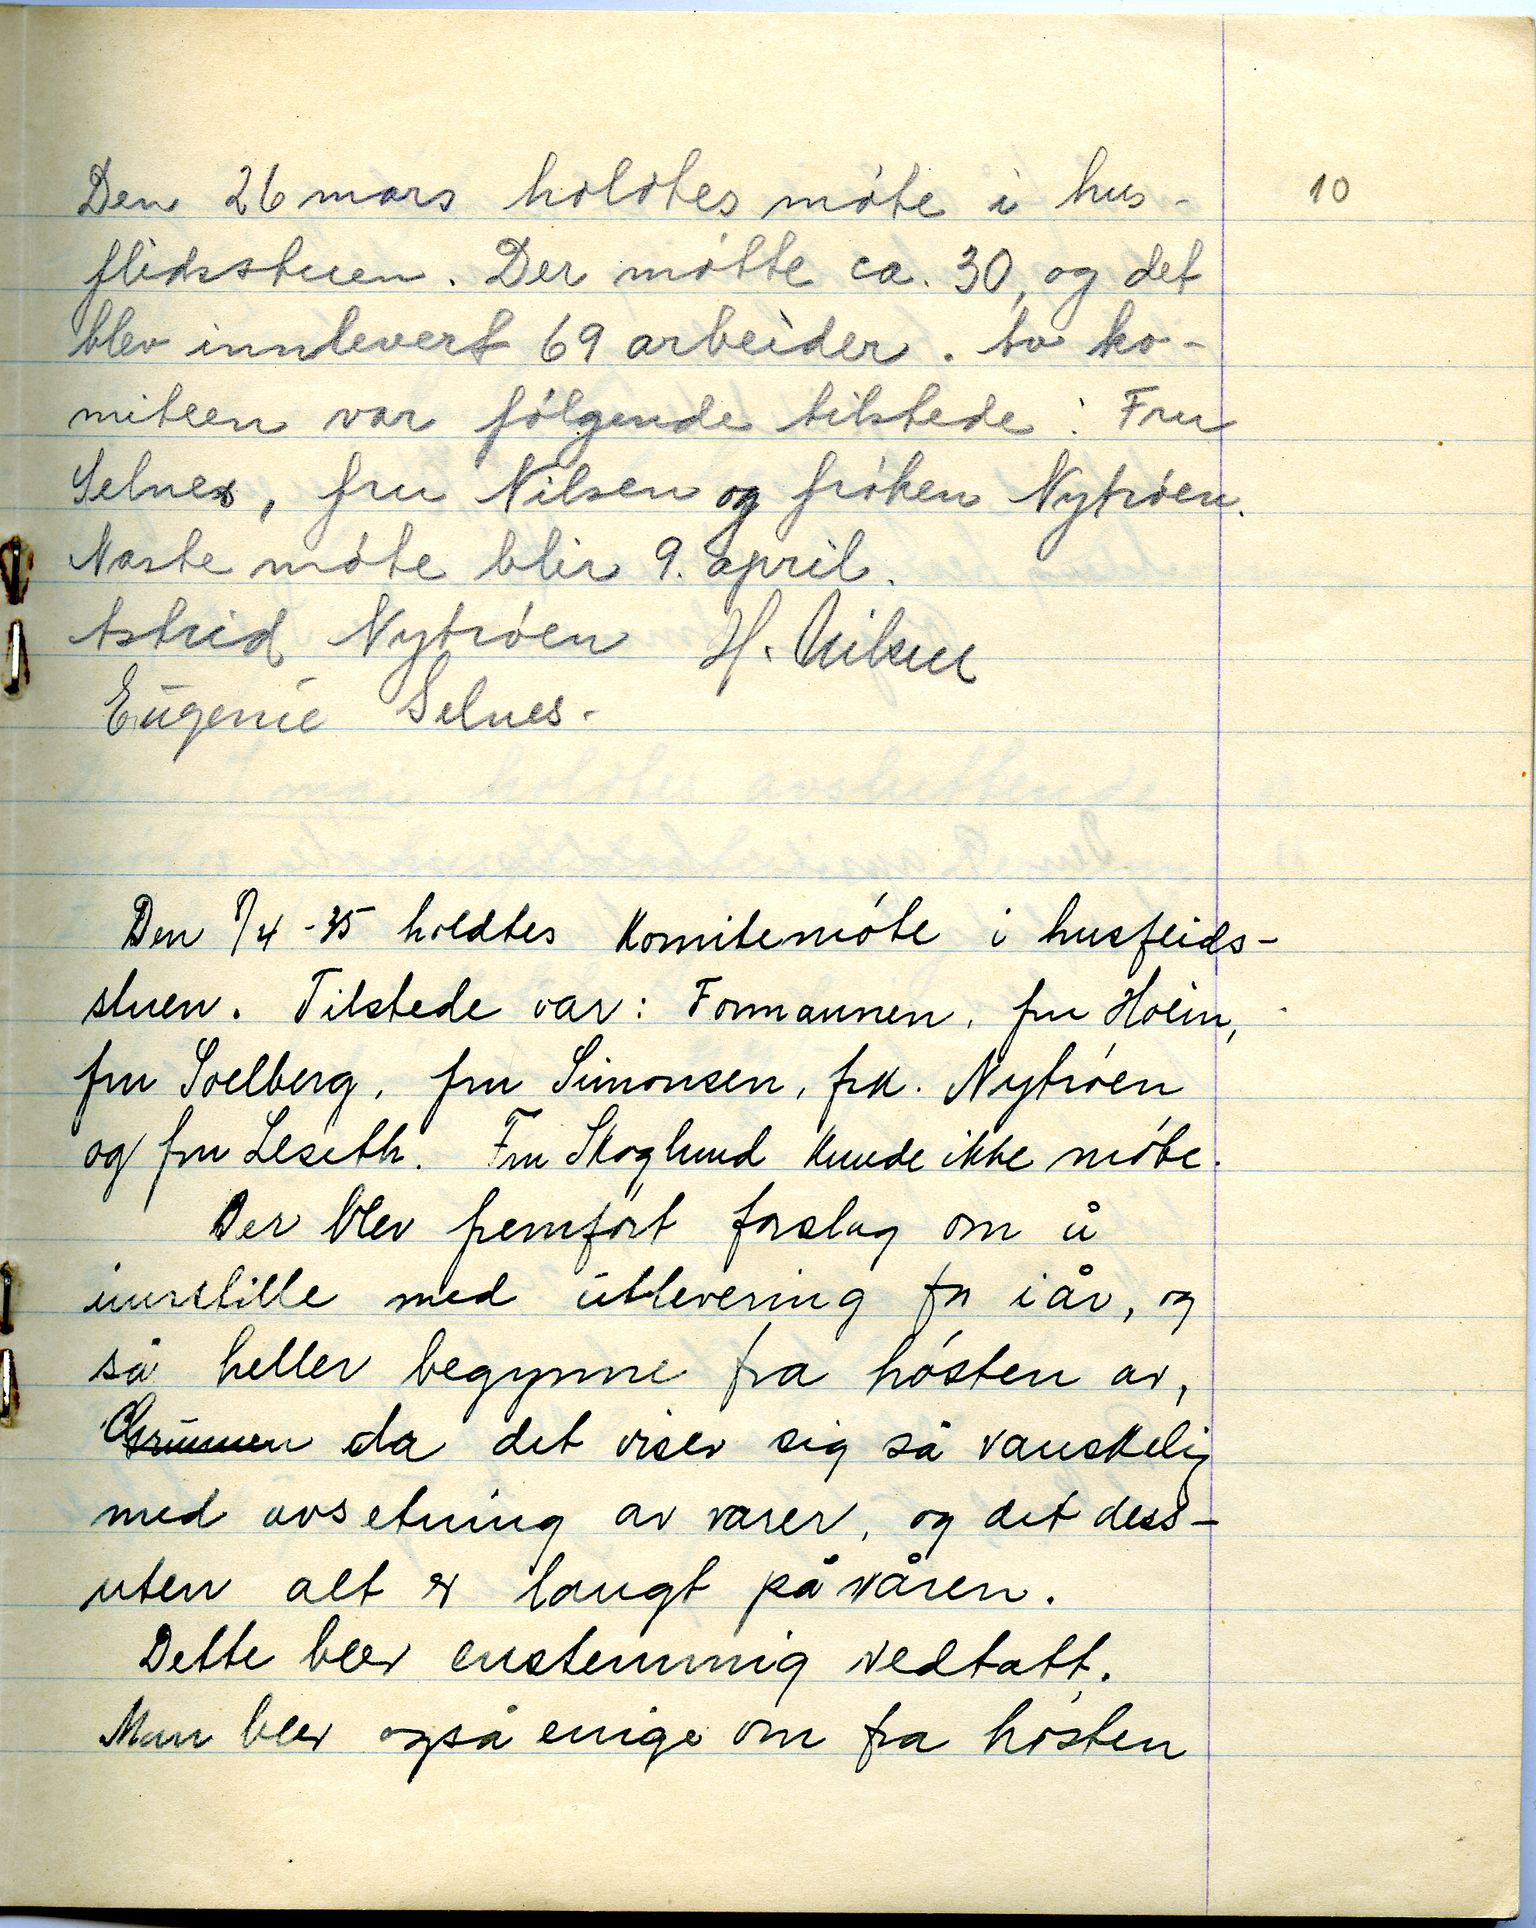 10
Den 26 mars holdtes møte i hus-
flidsstuen. Der møtte ca. 30, og det
blev innlevert 69 arbeider. Av ko-
miteen var følgende tilstede: Fru
Selnes, fru Nilsen og frøken Nytrøen.
Næste møte blir 9. april.
Astrid Nytrøen H. Nilsen
Eugenie Selnes.
Den /4 -35 holdtes komitemøte i husflids-
stuen. Tilstede var: Formannen, fru Holm,
fru Soelberg, fru Simonsen, frk. Nytrøen
og fru Leseth. Fru Skoglund kunde ikke møte.
Der blev fremført forslag om å
innstille med utlevering for iår, og
så heller begynne fra høsten av,
da det viser sig så vanskelig
med avsetning av varer, og det dess-
uten alt er langt på våren.
Dette blev enstemmig vedtatt.
Man blev også enige om fra høsten